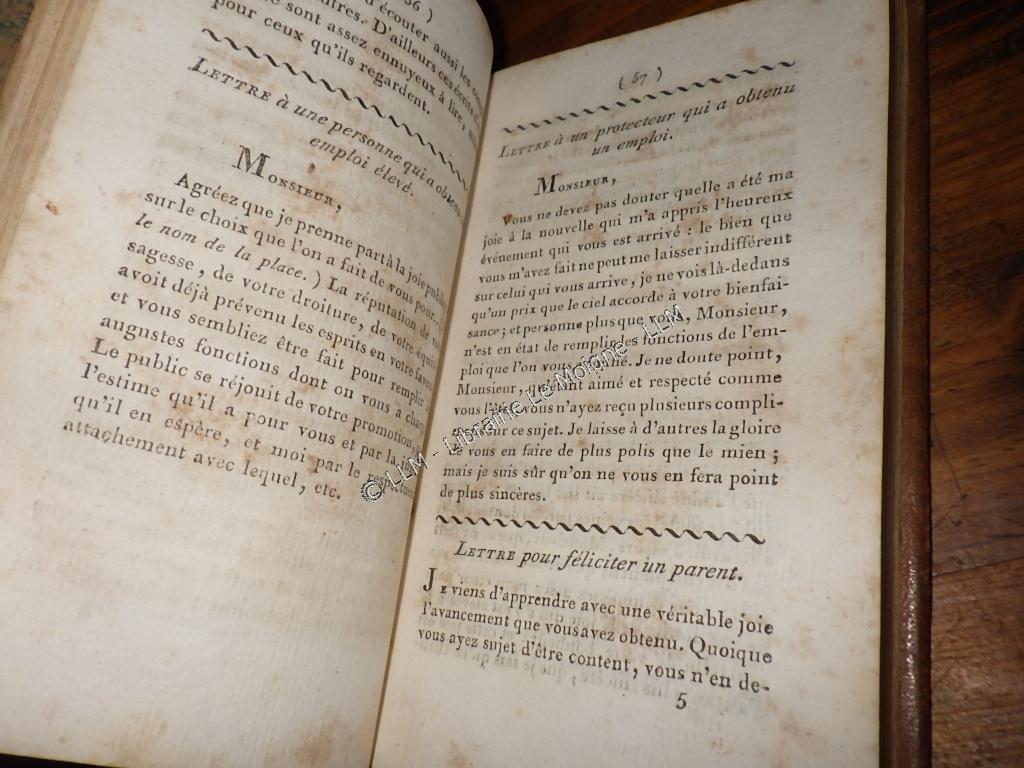 56 )
d'écouter aussi les
autres. D'ailleurs ces écrits
sont assez ennuyeux à lire,
pour ceux qu'ils regardent.
LETTRE à une personne qui a obtenu
emploi élevé.
MONSIEUR,
Agréez que je prenne part à la joie publi
sur le choix que l'on a fait de vous pour..
le nom de la place. ) La réputation de
sagesse, de votre droiture, de votre équi
avoit déjà prévenu les esprits en votre faveu
et vous sembliez être fait pour remplir
augustes fonctions dont on vous a charg
Le public se réjouit de votre promotion,
l'estime qu'il a pour vous et par la
qu'il en espère, et moi par le respectueu
attachement avec lequel, etc.
( 57 )
LETTRE à un protecteur qui a obtenu
un emploi.
MONSIEUR,
Vous ne devez pas douter quelle a été ma
joie à la nouvelle qui m'a appris l'heureux
événement qui vous est arrivé : le bien que
vous m'avez fait ne peut me laisser indifférent
sur celui qui vous arrive ; je ne vois là-dedans
qu'un prix que le ciel accorde à votre bienfai-
sance ; et personne plus que vous, Monsieur,
n'est en état de remplir les fonctions de l'em-
ploi que l'on vous
Monsieur, que tant aimé et respecté comme
vous l'êtes, vous n'ayez reçu plusieurs compli-
sur ce sujet. Je laisse à d'autres la gloire
de vous en faire de plus polis que le mien ;
mais je suis sûr qu'on ne vous en fera point
de plus sincères.
LETTRE pour féliciter un parent.
JE viens d'apprendre avec une véritable joie
l'avancement que vous avez obtenu. Quoique
vous ayez sujet d'être content, vous n'en de-
5
© LLM - Librairie Le Moigne - LLM